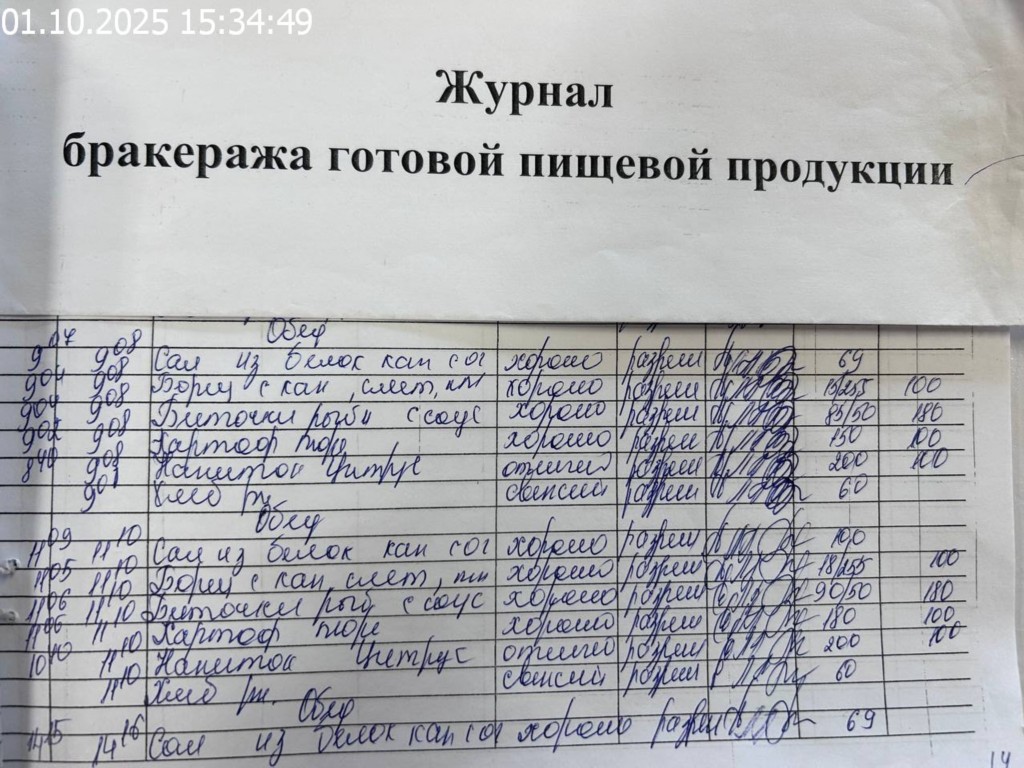 01.10.2025 15:34:49
Журнал
бракеража готовой пищевой продукции
Обед
9 07 9 08 Сал из белок кап сог хорошо разреш 69
9 04 9 08 Борщ с кап, смет, хорошо разреш 100
9 04 9 08 Биточки рыбн с соус хорошо разреш 85/50 180
9 02 9 08 Картоф пюре хорошо разреш 150 100
8 40 9 08 Напиток Цитрус отлично разреш 200 100
9 08 Хлеб рж свежий разреш 60
Обед
11 09 11 10 Сал из белок кап сог хорошо разреш 100
11 05 11 10 Борщ с кап, смет, хорошо разреш 18/255 100
11 06 11 10 Биточки рыб с соус хорошо разреш 90/50 180
11 06 11 10 Картоф пюре хорошо разреш 180 100
10 10 11 10 Напиток Цитрус отлично разреш 200 100
11 10 Хлеб рж свежий разреш 60
Обед
14 15 14 16 Сал из белок кап сог хорошо разреш 69
14